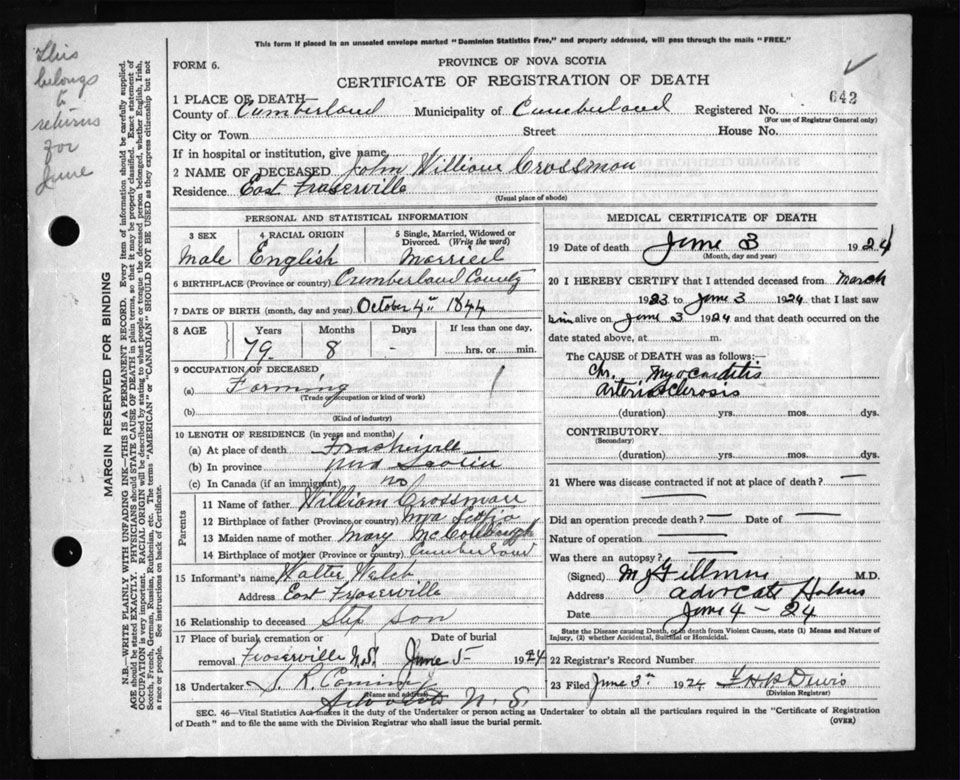 This form if placed in an unsealed envelope marked "Dominion Statistics Free," and property addressed, will pass through the mails "FREE."
This belongs to returns for June
FORM 6.
PROVINCE OF NOVA SCOTIA
CERTIFICATE OF REGISTRATION OF DEATH
1 PLACE OF DEATH
County of Cumberland Municipality of Cumberland Registered No. 642
(For use of Registrar General only)
City or Town Street House No.
If in hospital or institution, give name
2 NAME OF DECEASED John William Crossman
Residence East Fraserville
(Usual place of abode)
PERSONAL AND STATISTICAL INFORMATION
3 SEX 4 RACIAL ORIGIN 5 Single, Married, Widowed or Divorced. (Write the word)
Male English Married
6 BIRTHPLACE (Province or country) Cumberland County
7 DATE OF BIRTH (month, day and year) October 4th 1844
8 AGE Years Months Days If less than one day,
79 8 - hrs. or min.
9 OCCUPATION OF DECEASED
(a) Farming
(Trade or occupation or kind of work)
(b)
(Kind of industry)
10 LENGTH OF RESIDENCE (in years and months)
(a) At place of death
(b) In province Nova Scotia
(c) In Canada (if an immigrant) no
Parents
11 Name of father William Crossman
12 Birthplace of father (Province or country) Scotia
13 Maiden name of mother Mary
14 Birthplace of mother (Province or country) Cumberland
15 Informant's name Walter Welsh
Address East Fraserville
16 Relationship to deceased Step Son
17 Place of burial, cremation or removal Fraserville N.S. Date of burial June 5 1924
18 Undertaker S. R.
Name and address
N. S.
MEDICAL CERTIFICATE OF DEATH
19 Date of death June 3 1924
(Month, day and year)
20 I HEREBY CERTIFY that I attended deceased from March
1923 to June 3 1924 that I last saw
him alive on June 3 1924 and that death occurred on the
date stated above, at m.
The CAUSE OF DEATH was as follows:
Ch. Myocarditis
Arterio sclerosis
(duration) yrs. mos. dys.
CONTRIBUTORY
(Secondary)
(duration) yrs. mos. dys.
21 Where was disease contracted if not at place of death? —
Did an operation precede death? — Date of —
Nature of operation —
Was there an autopsy? —
(Signed) M.D.
Address Advocate
Date June 4 - 24
State the Disease causing Death, or in death from Violent Causes, state (1) Means and Nature of
Injury, (2) whether Accidental, Suicidal or Homicidal.
22 Registrar's Record Number
23 Filed June 3rd 1924
(Division Registrar)
SEC. 46—Vital Statistics Act makes it the duty of the Undertaker or person acting as Undertaker to obtain all the particulars required in the "Certificate of Registration
of Death" and to file the same with the Division Registrar who shall issue the burial permit. (OVER)
MARGIN RESERVED FOR BINDING
N.B.—WRITE PLAINLY WITH UNFADING INK—THIS IS A PERMANENT RECORD. Every item of information should be carefully supplied.
AGE should be stated EXACTLY. PHYSICIANS should STATE CAUSE OF DEATH in plain terms, so that it may be properly classified. Exact statement of
OCCUPATION is very important. RACIAL ORIGIN will be described by stating to what people or tongue the deceased person belonged, whether English, Irish,
Scotch, French, German, Russian, Ruthenian, etc. The terms "AMERICAN" or "CANADIAN" SHOULD NOT BE USED as they express citizenship but not
a race or people. See instructions on back of Certificate.